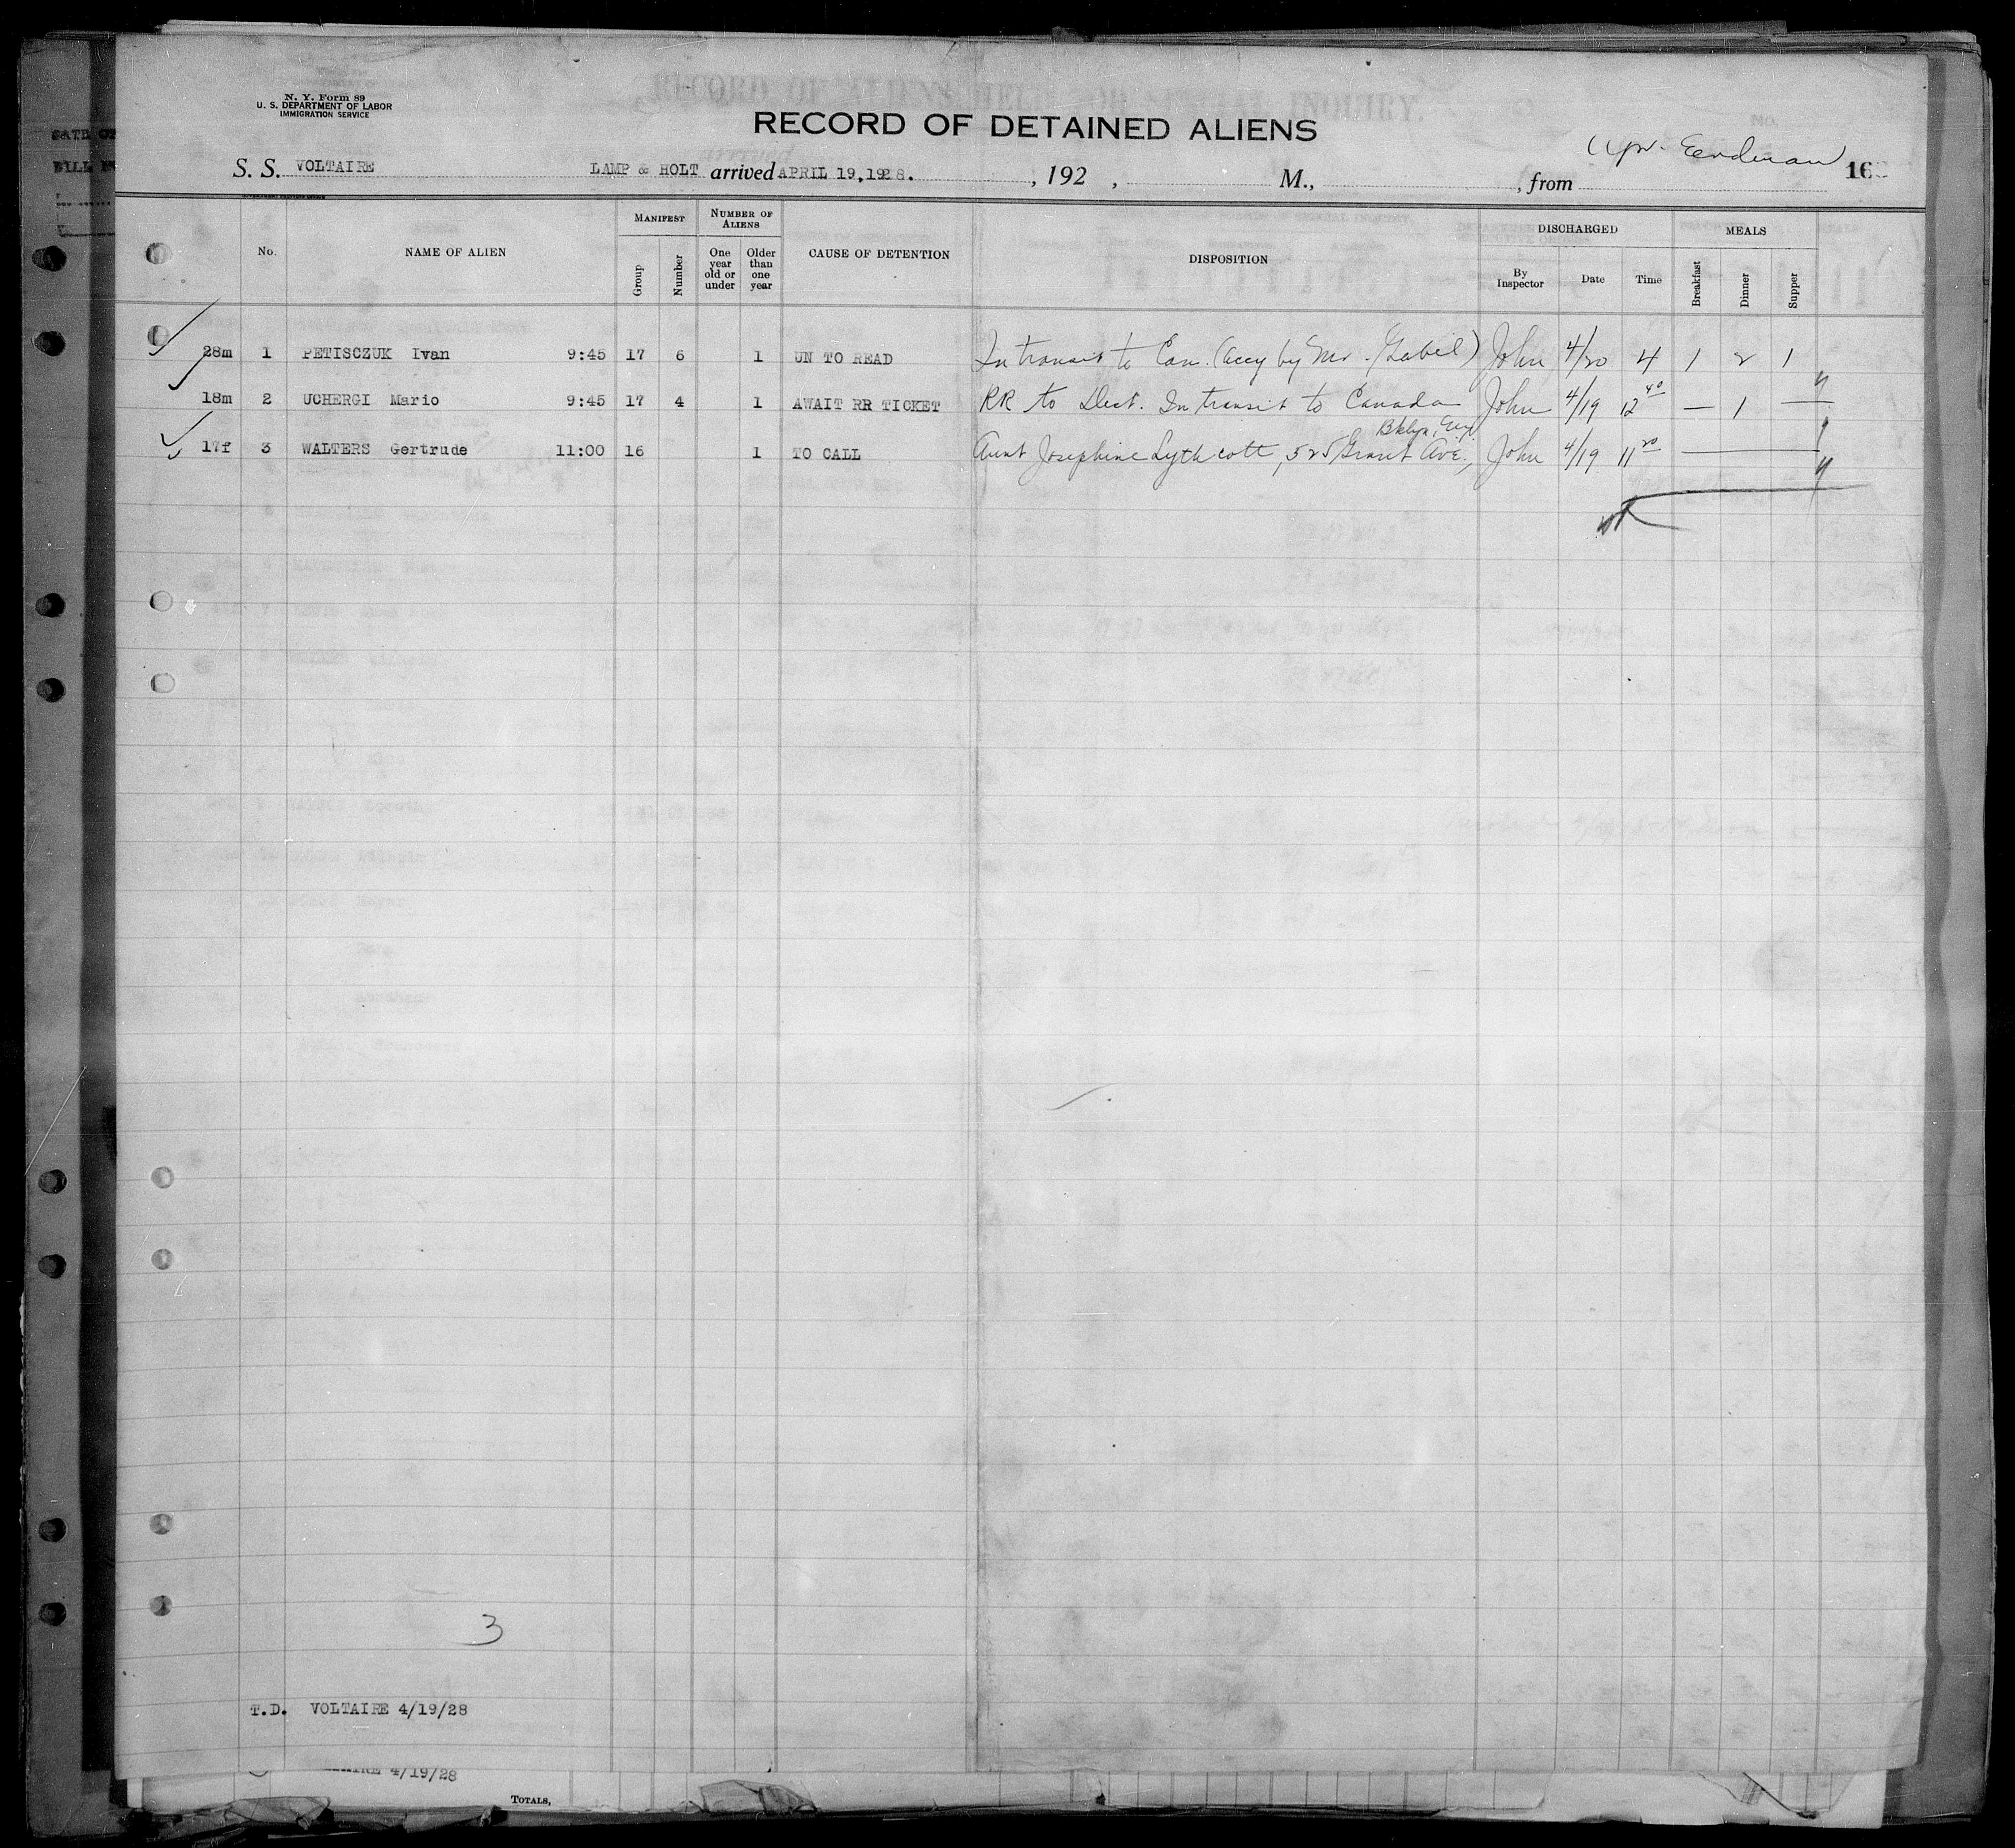 N. Y. Form 89
U. S. DEPARTMENT OF LABOR
IMMIGRATION SERVICE
RECORD OF DETAINED ALIENS
S. S. VOLTAIRE LAMP & HOLT arrived APRIL 19, 1928. , 192 , M., , from 16
No. NAME OF ALIEN MANIFEST Group Number NUMBER OF ALIENS One year old or under Older than one year CAUSE OF DETENTION DISPOSITION DISCHARGED By Inspector Date Time MEALS Breakfast Dinner Supper
28m 1 PETISCZUK Ivan 9:45 17 6 1 UN TO READ In transit to Can. (Accy by Mr. Gabel) John 4/20 4 1 2 1
18m 2 UCHERGI Mario 9:45 17 4 1 AWAIT RR TICKET RR to Dest. In transit to Canada John 4/19 12 40 — 1 —
Bklyn,
17f 3 WALTERS Gertrude 11:00 16 1 TO CALL Aunt Josephine Lythcott, 525 Grant Ave., John 4/19 11 20
3
T.D. VOLTAIRE 4/19/28
4/19/28
TOTALS,